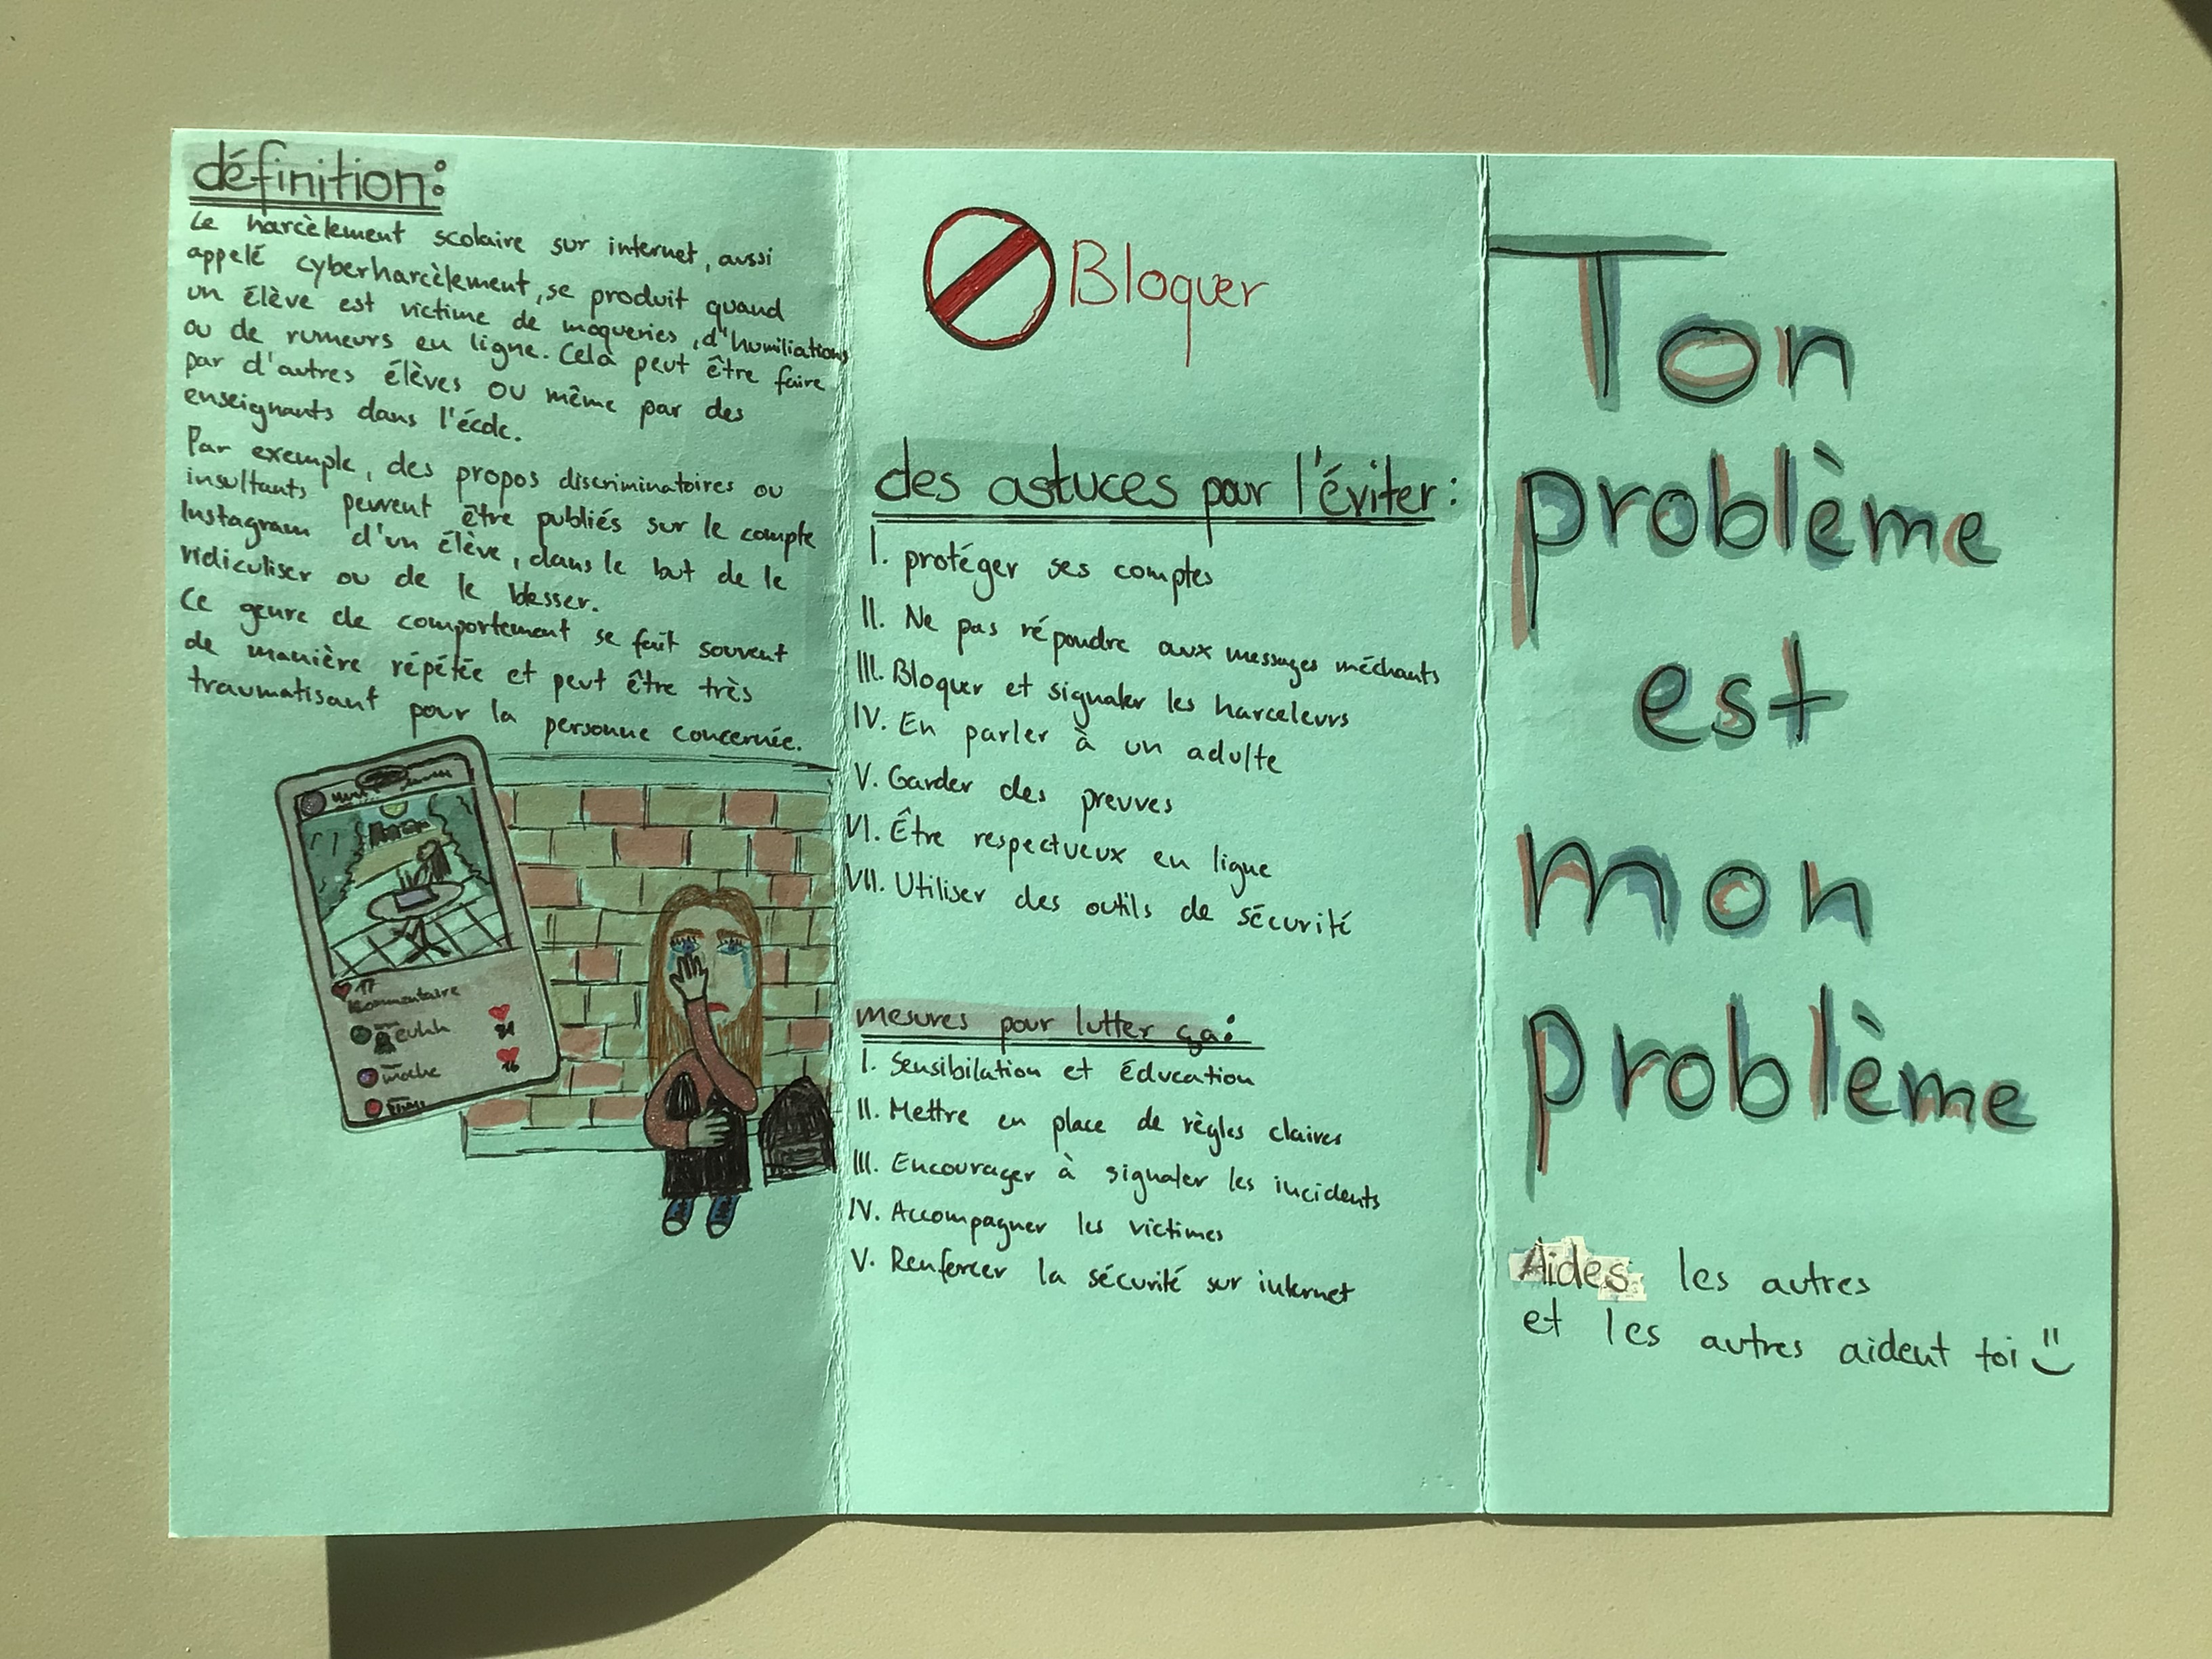 définition:
Le harcèlement scolaire sur internet, aussi
appelé cyberharcèlement, se produit quand
un élève est victime de moqueries, d'humiliations
ou de rumeurs en ligne. Celà peut être faire
par d'autres élèves ou même par des
enseignants dans l'école.
Par exemple, des propos discriminatoires ou
insultants peuvent être publiés sur le compte
Instagram d'un élève, dans le but de le
ridiculiser ou de le blesser.
Ce genre de comportement se fait souvent
de manière répétée et peut être très
traumatisant pour la personne concernée.
17
Kommentaire
euhh
moche
16
Bloquer
des astuces pour l'éviter:
I. protéger ses comptes
II. Ne pas répondre aux messages méchants
III. Bloquer et signaler les harceleurs
IV. En parler à un adulte
V. Garder des preuves
VI. Être respectueux en ligne
VII. Utiliser des outils de sécurité
mesures pour lutter ça:
I. Sensibilation et éducation
II. Mettre en place de règles claires
III. Encourager à signaler les incidents
IV. Accompagner les victimes
V. Renforcer la sécurité sur internet
Ton
problème
est
mon
problème
Aides les autres
et les autres aident toi